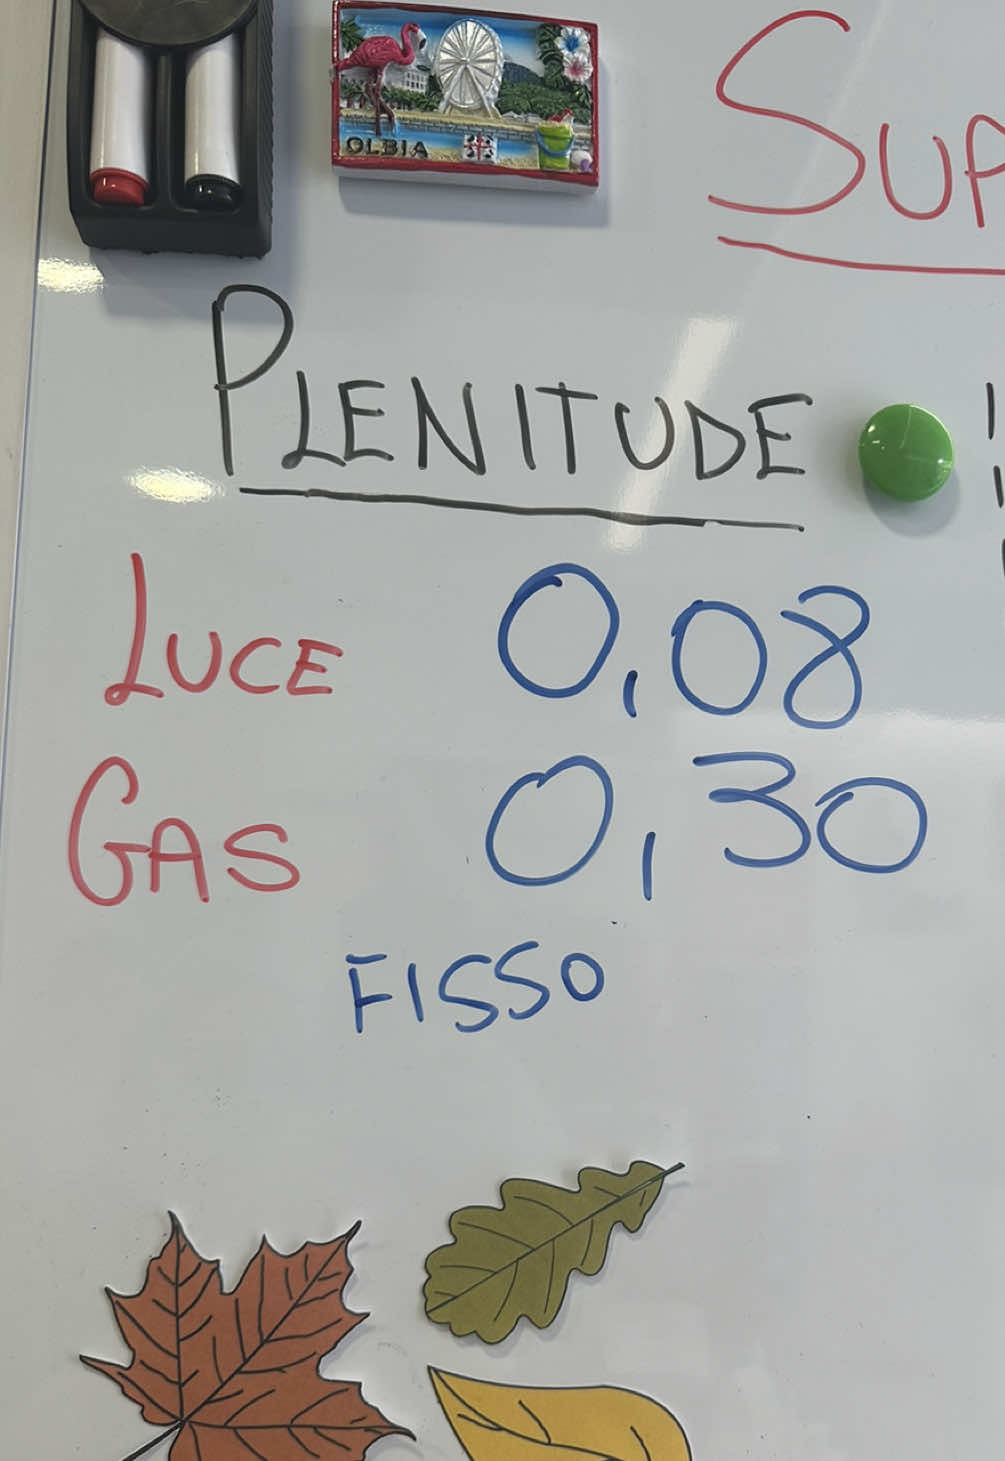 OLBIA
PLENITUDE
LUCE 0,08
GAS 0,30
FISSO